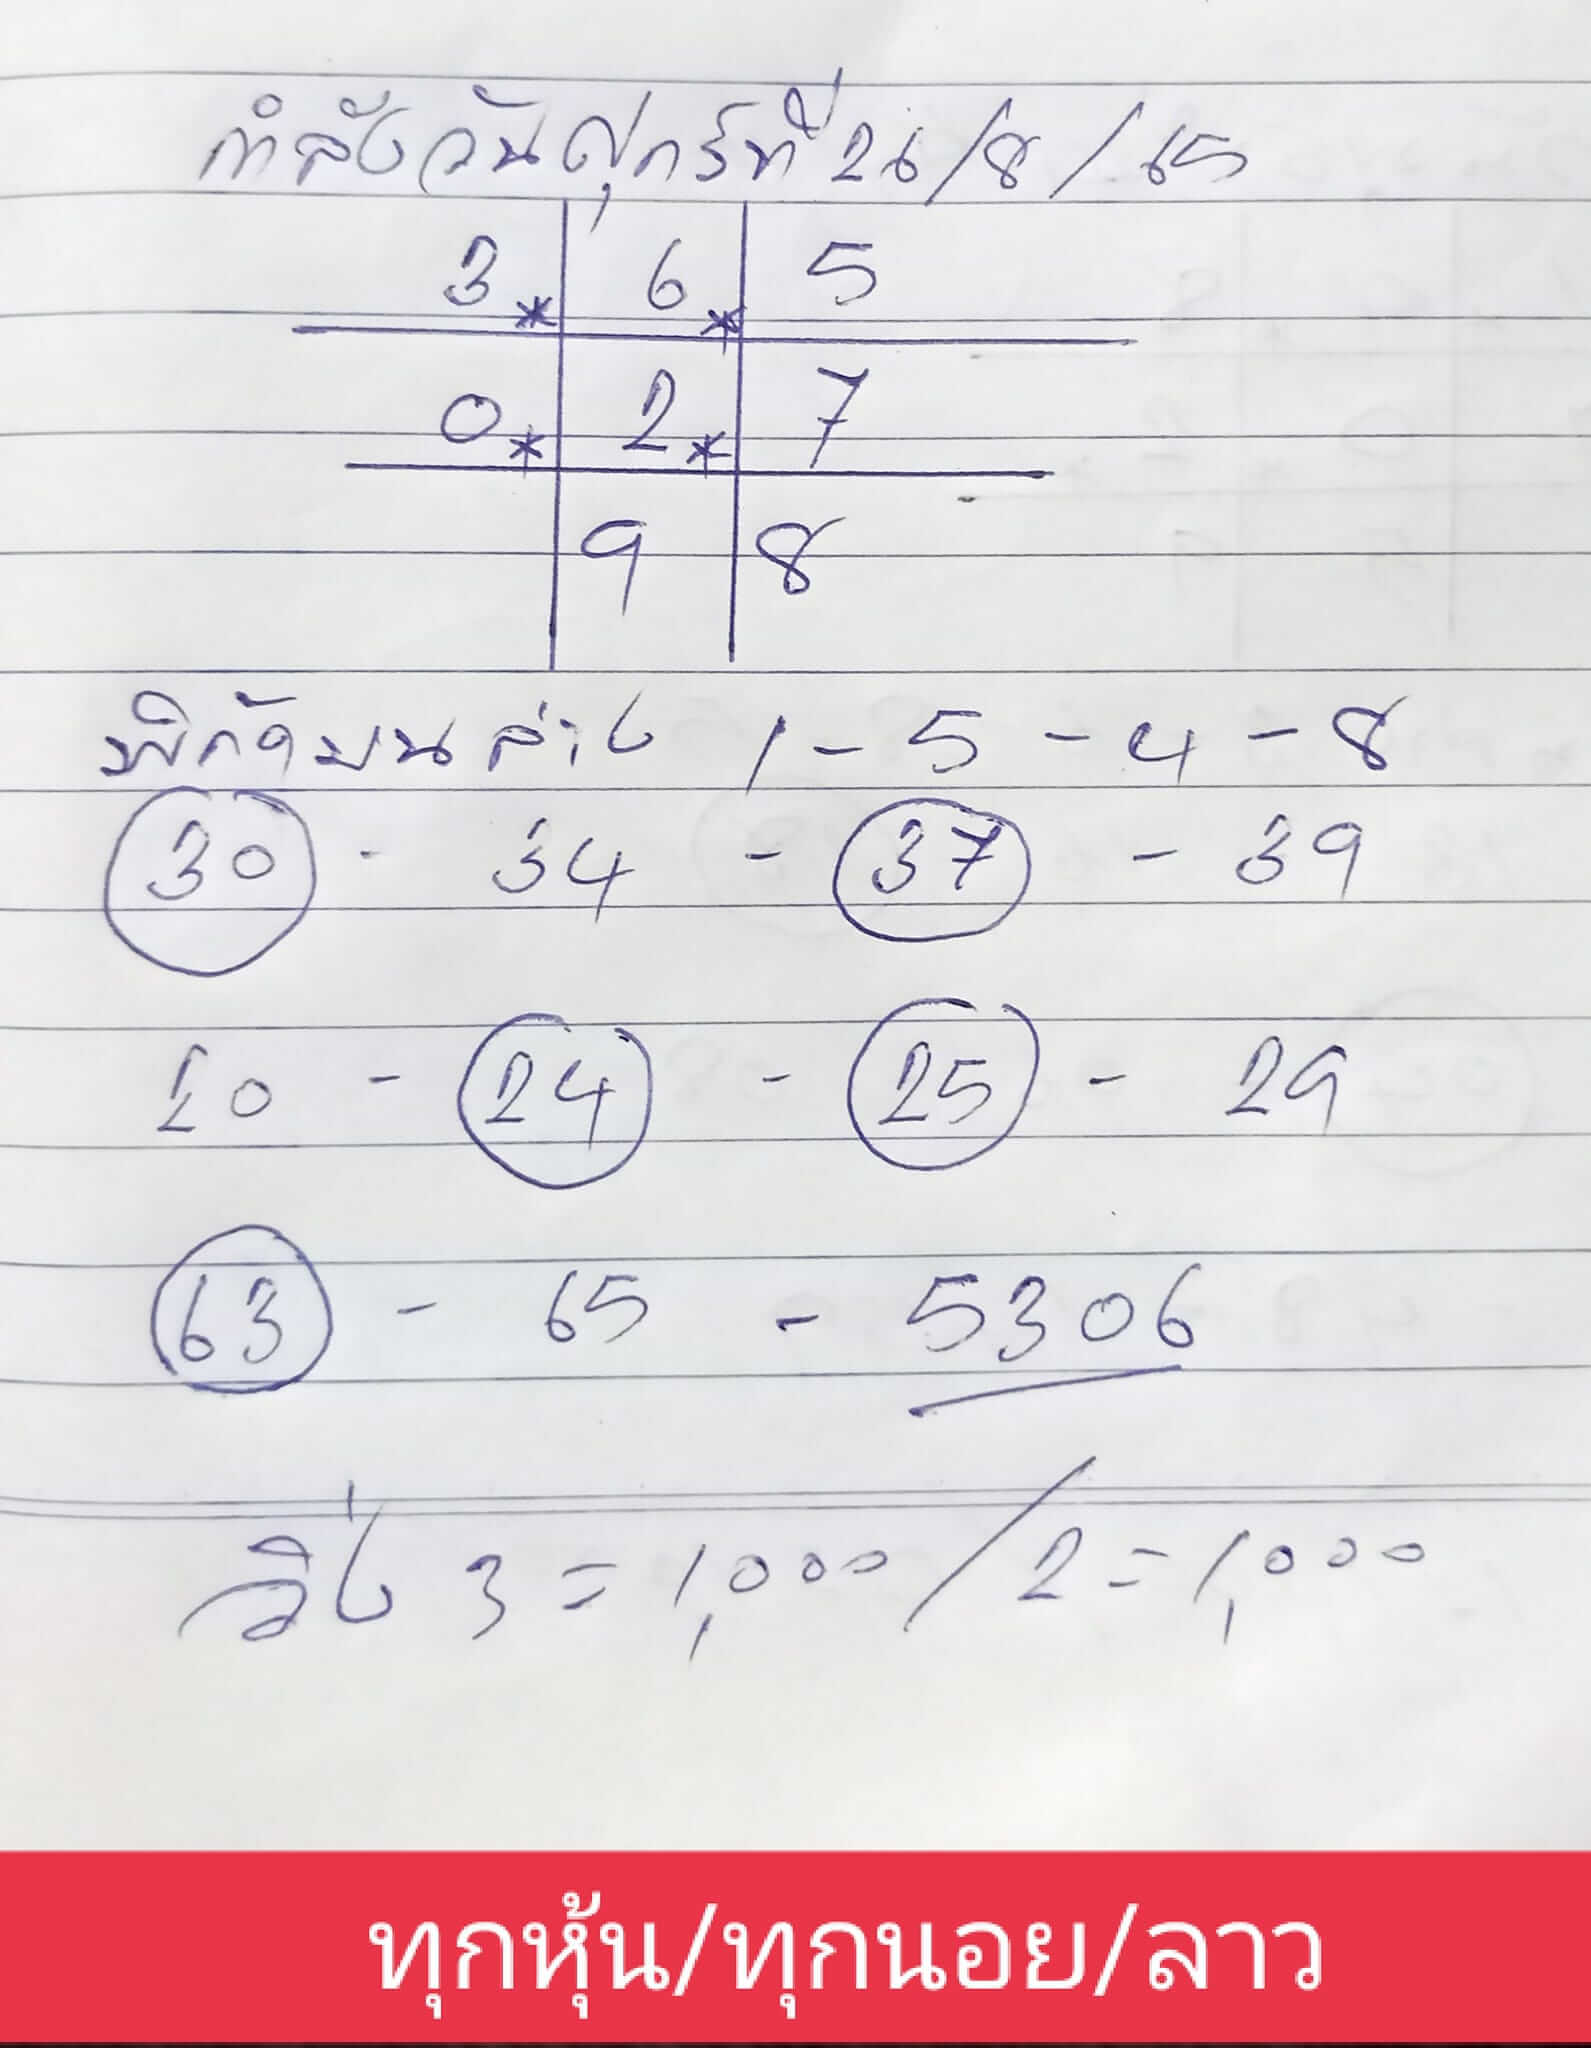 กำลังวันศุกร์ที่ 26/8/65
3* 6* 5
0* 2* 7
9 8
พิกัดบนล่าง 1-5-4-8
30 - 34 - 37 - 39
20 - 24 - 25 - 29
63 - 65 - 5306
วิ่ง 3 = 1,000/2 = 1,000
ทุกหุ้น/ทุกนอย/ลาว